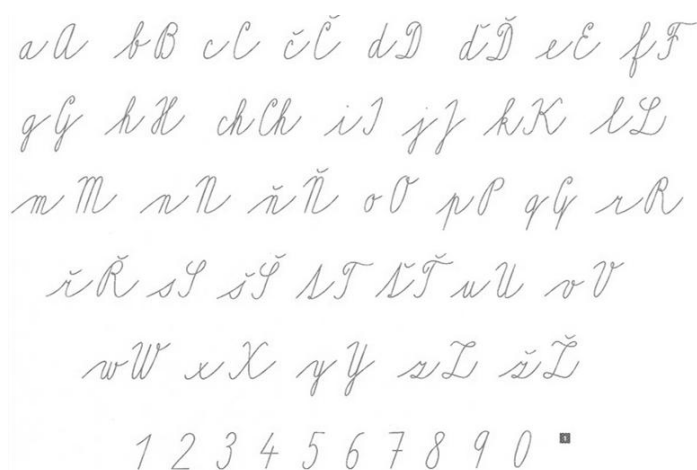 aA bB cC čČ dD ďĎ eE fF
gG hH chCh iI jJ kK lL
mM nN ňŇ oO pP qQ rR
řŘ sS šŠ tT ťŤ uU vV
wW xX yY zZ žŽ
1 2 3 4 5 6 7 8 9 0